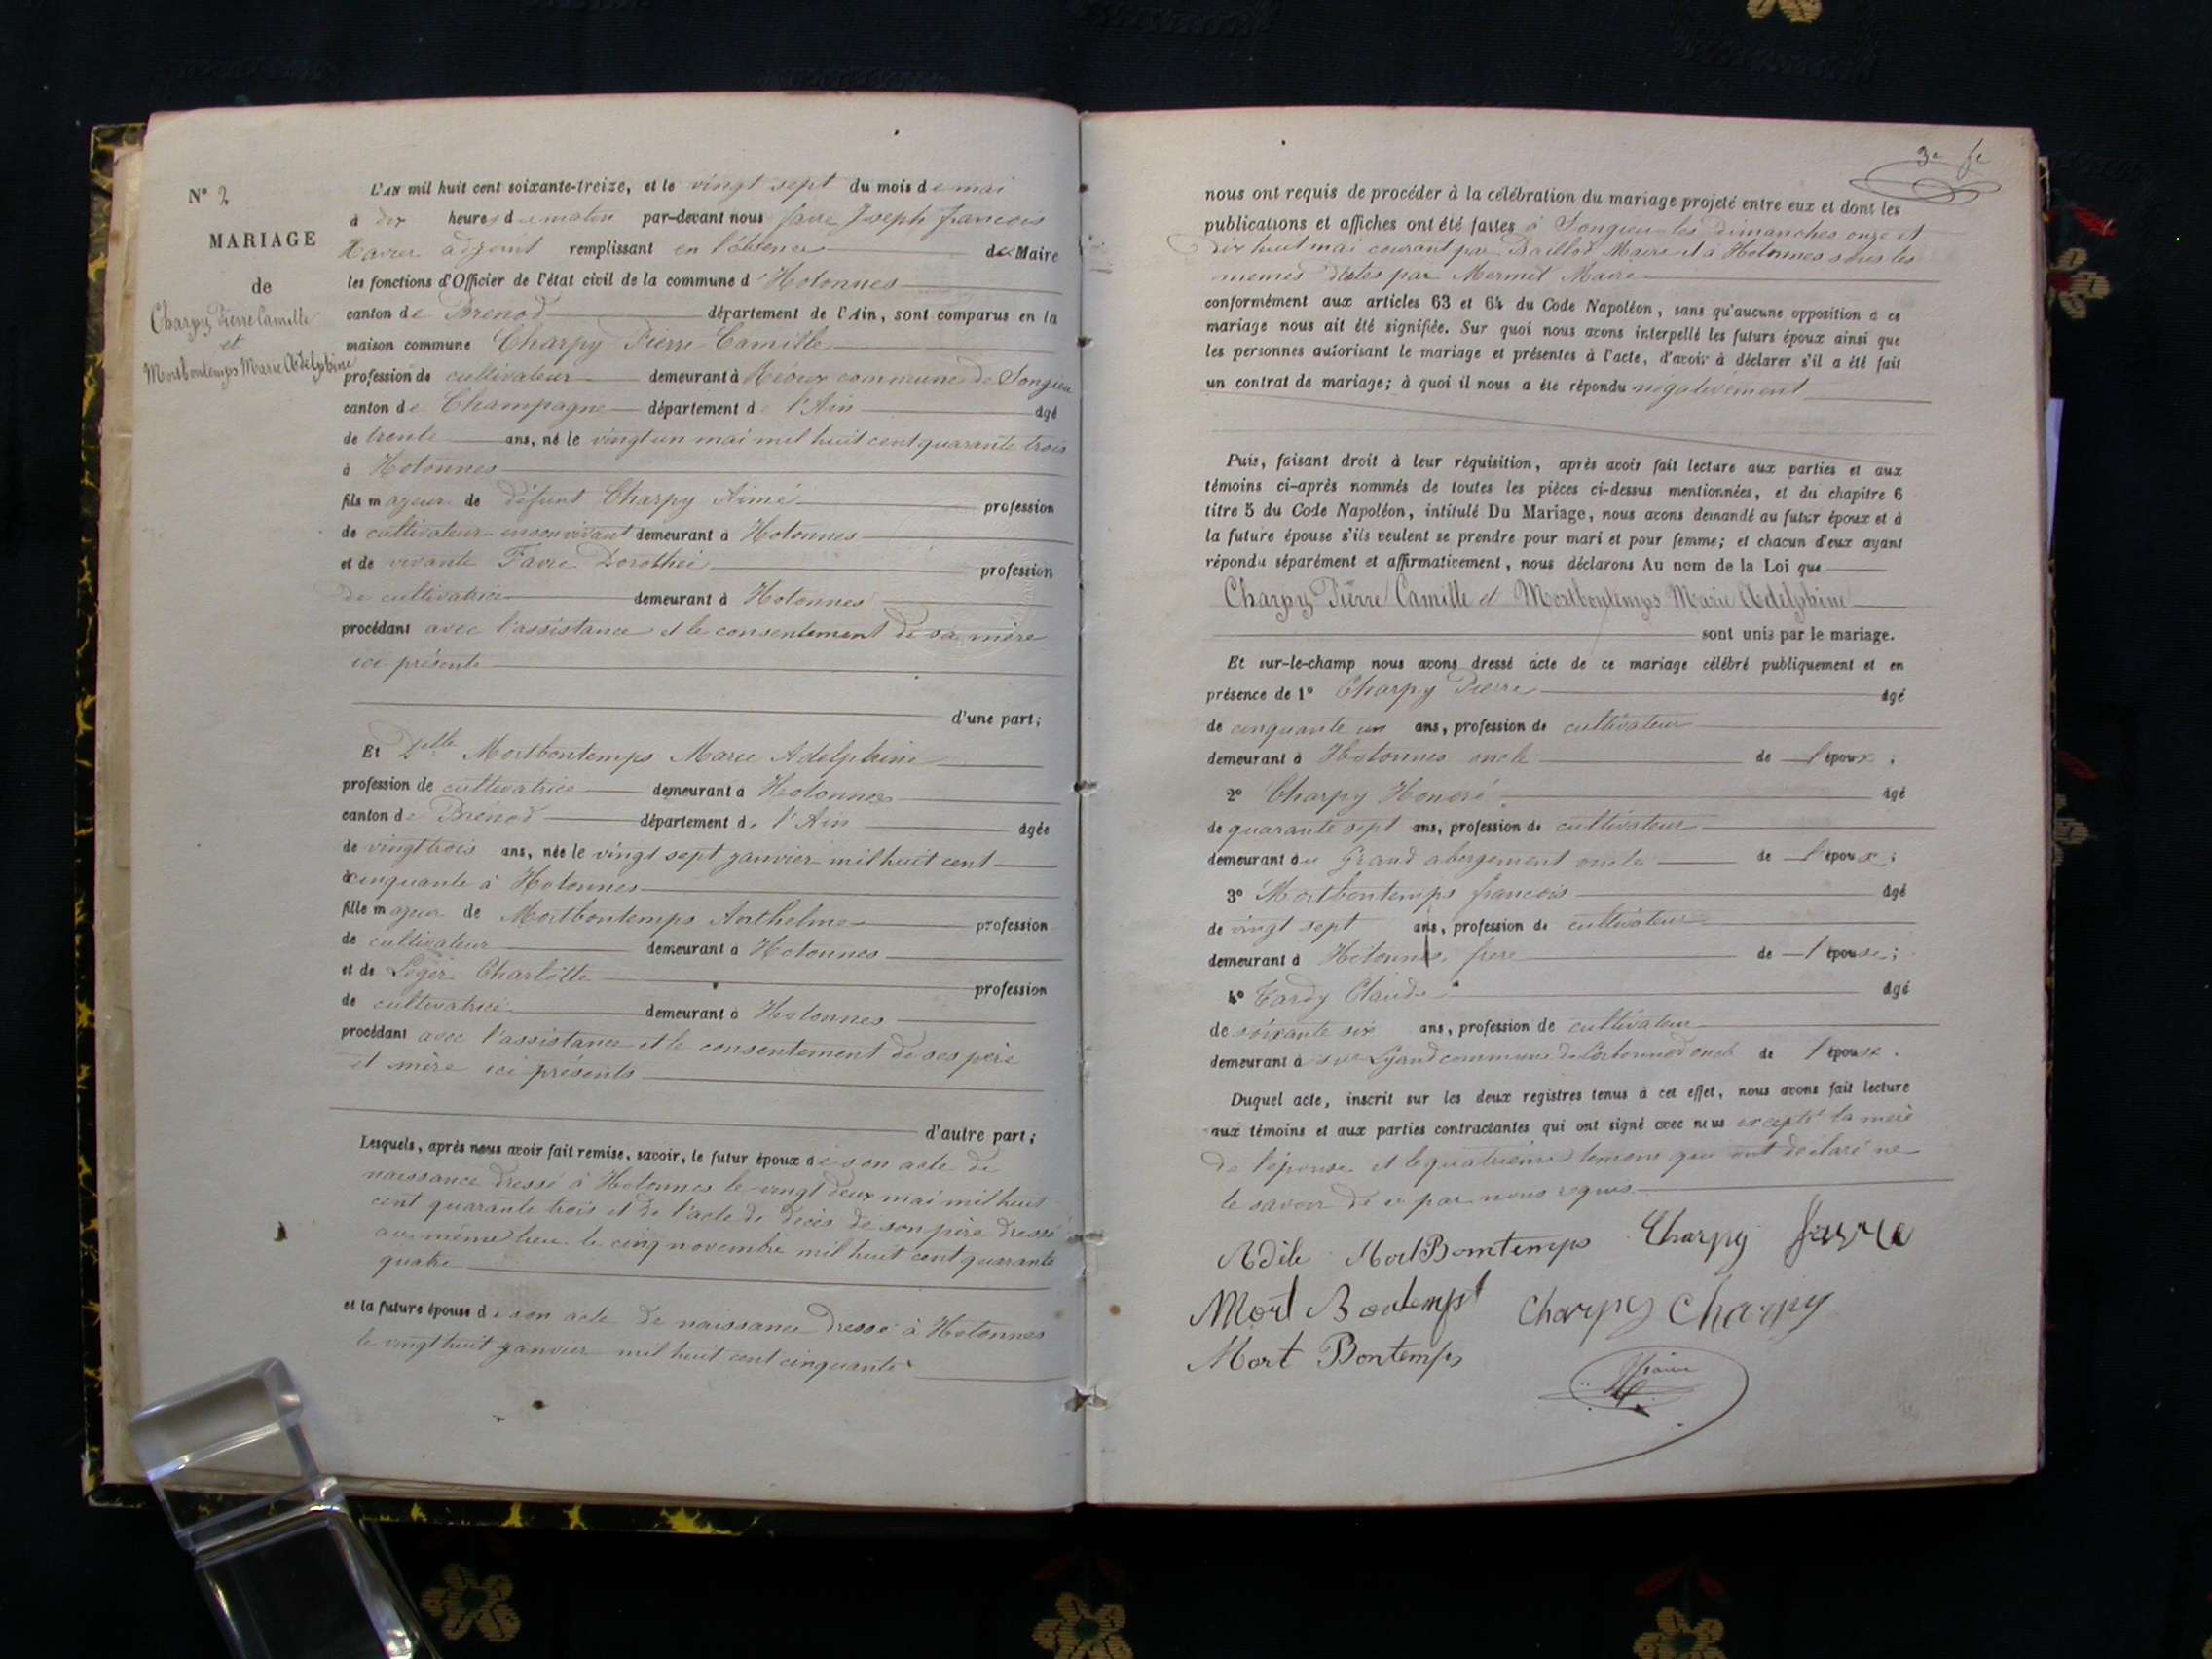 N° 2
MARIAGE
de
Charpy Pierre Camille
et
Mortbontemps Marie Adelphine
L'AN mil huit cent soixante-treize, et le vingt sept du mois de mai
à dix heures du matin par-devant nous favre Joseph francois
Xavier adjoint remplissant en l'absence du Maire
les fonctions d'Officier de l'état civil de la commune d'Hotonnes
canton de Brenod département de l'Ain, sont comparus en la
maison commune Charpy Pierre Camille
profession de cultivateur demeurant à commune de Songieu
canton de Champagne département de l'Ain âgé
de trente ans, né le vingt un mai mil huit cent quarante trois
à Hotonnes
fils majeur de défunt Charpy Aimé profession
de cultivateur en son vivant demeurant à Hotonnes
et de vivante Favre Dorothé profession
de cultivatrice demeurant à Hotonnes
procédant avec l'assistance et le consentement de sa mère
ici présente
d'une part;
Et Delle Mortbontemps Marie Adelphine
profession de cultivatrice demeurant à Hotonnes
canton de Brénod département de l'Ain âgée
de vingt trois ans, née le vingt sept janvier mil huit cent
cinquante à Hotonnes
fille majeur de Mortbontemps Anthelme profession
de cultivateur demeurant à Hotonnes
et de Léger Charlotte profession
de cultivatrice demeurant à Hotonnes
procédant avec l'assistance et le consentement de ses père
et mère ici présents
d'autre part;
Lesquels, après nous avoir fait remise, savoir, le futur époux de son acte de
naissance dressé à Hotonnes le vingt deux mai mil huit
cent quarante trois et de l'acte de décès de son père dressé
au même lieu le cinq novembre mil huit cent quarante
quatre
et la future épouse de son acte de naissance dressé à Hotonnes
le vingt huit janvier mil huit cent cinquante
3e fe
nous ont requis de procéder à la célébration du mariage projeté entre eux et dont les
publications et affiches ont été faites à Songieu les dimanches onze et
dix huit mai courant par Baillod Maire et à Hotonnes sous les
memes dates par Mermet Maire
conformément aux articles 63 et 64 du Code Napoléon, sans qu'aucune opposition à ce
mariage nous ait été signifiée. Sur quoi nous avons interpellé les futurs époux ainsi que
les personnes autorisant le mariage et présentes à l'acte, d'avoir à déclarer s'il a été fait
un contrat de mariage; à quoi il nous a été répondu négativement
Puis, faisant droit à leur réquisition, après avoir fait lecture aux parties et aux
témoins ci-après nommés de toutes les pièces ci-dessus mentionnées, et du chapitre 6
titre 5 du Code Napoléon, intitulé Du Mariage, nous avons demandé au futur époux et à
la future épouse s'ils veulent se prendre pour mari et pour femme; et chacun d'eux ayant
répondu séparément et affirmativement, nous déclarons Au nom de la Loi que
Charpy Pierre Camille et Mortbontemps Marie Adelphine
sont unis par le mariage.
Et sur-le-champ nous avons dressé acte de ce mariage célébré publiquement et en
présence de 1° Charpy Pierre âgé
de cinquante un ans, profession de cultivateur
demeurant à Hotonnes oncle de l'époux;
2° Charpy Honoré âgé
de quarante sept ans, profession de cultivateur
demeurant au Grand abergement oncle de l'époux;
3° Mortbontemps francois âgé
de vingt sept ans, profession de cultivateur
demeurant à Hotonnes frere de l'épouse;
4° Tardy Claude âgé
de soixante six ans, profession de cultivateur
demeurant à sur Lyand commune de Corbonod oncle de l'épouse.
Duquel acte, inscrit sur les deux registres tenus à cet effet, nous avons fait lecture
aux témoins et aux parties contractantes qui ont signé avec nous excepté la mere
de l'épouse et le quatrieme temoin qui ont declaré ne
le savoir de ce par nous requis
Adèle MortBontemps Charpy favre
Mort Bontempt Charpy Charpy
Mort Bontemps